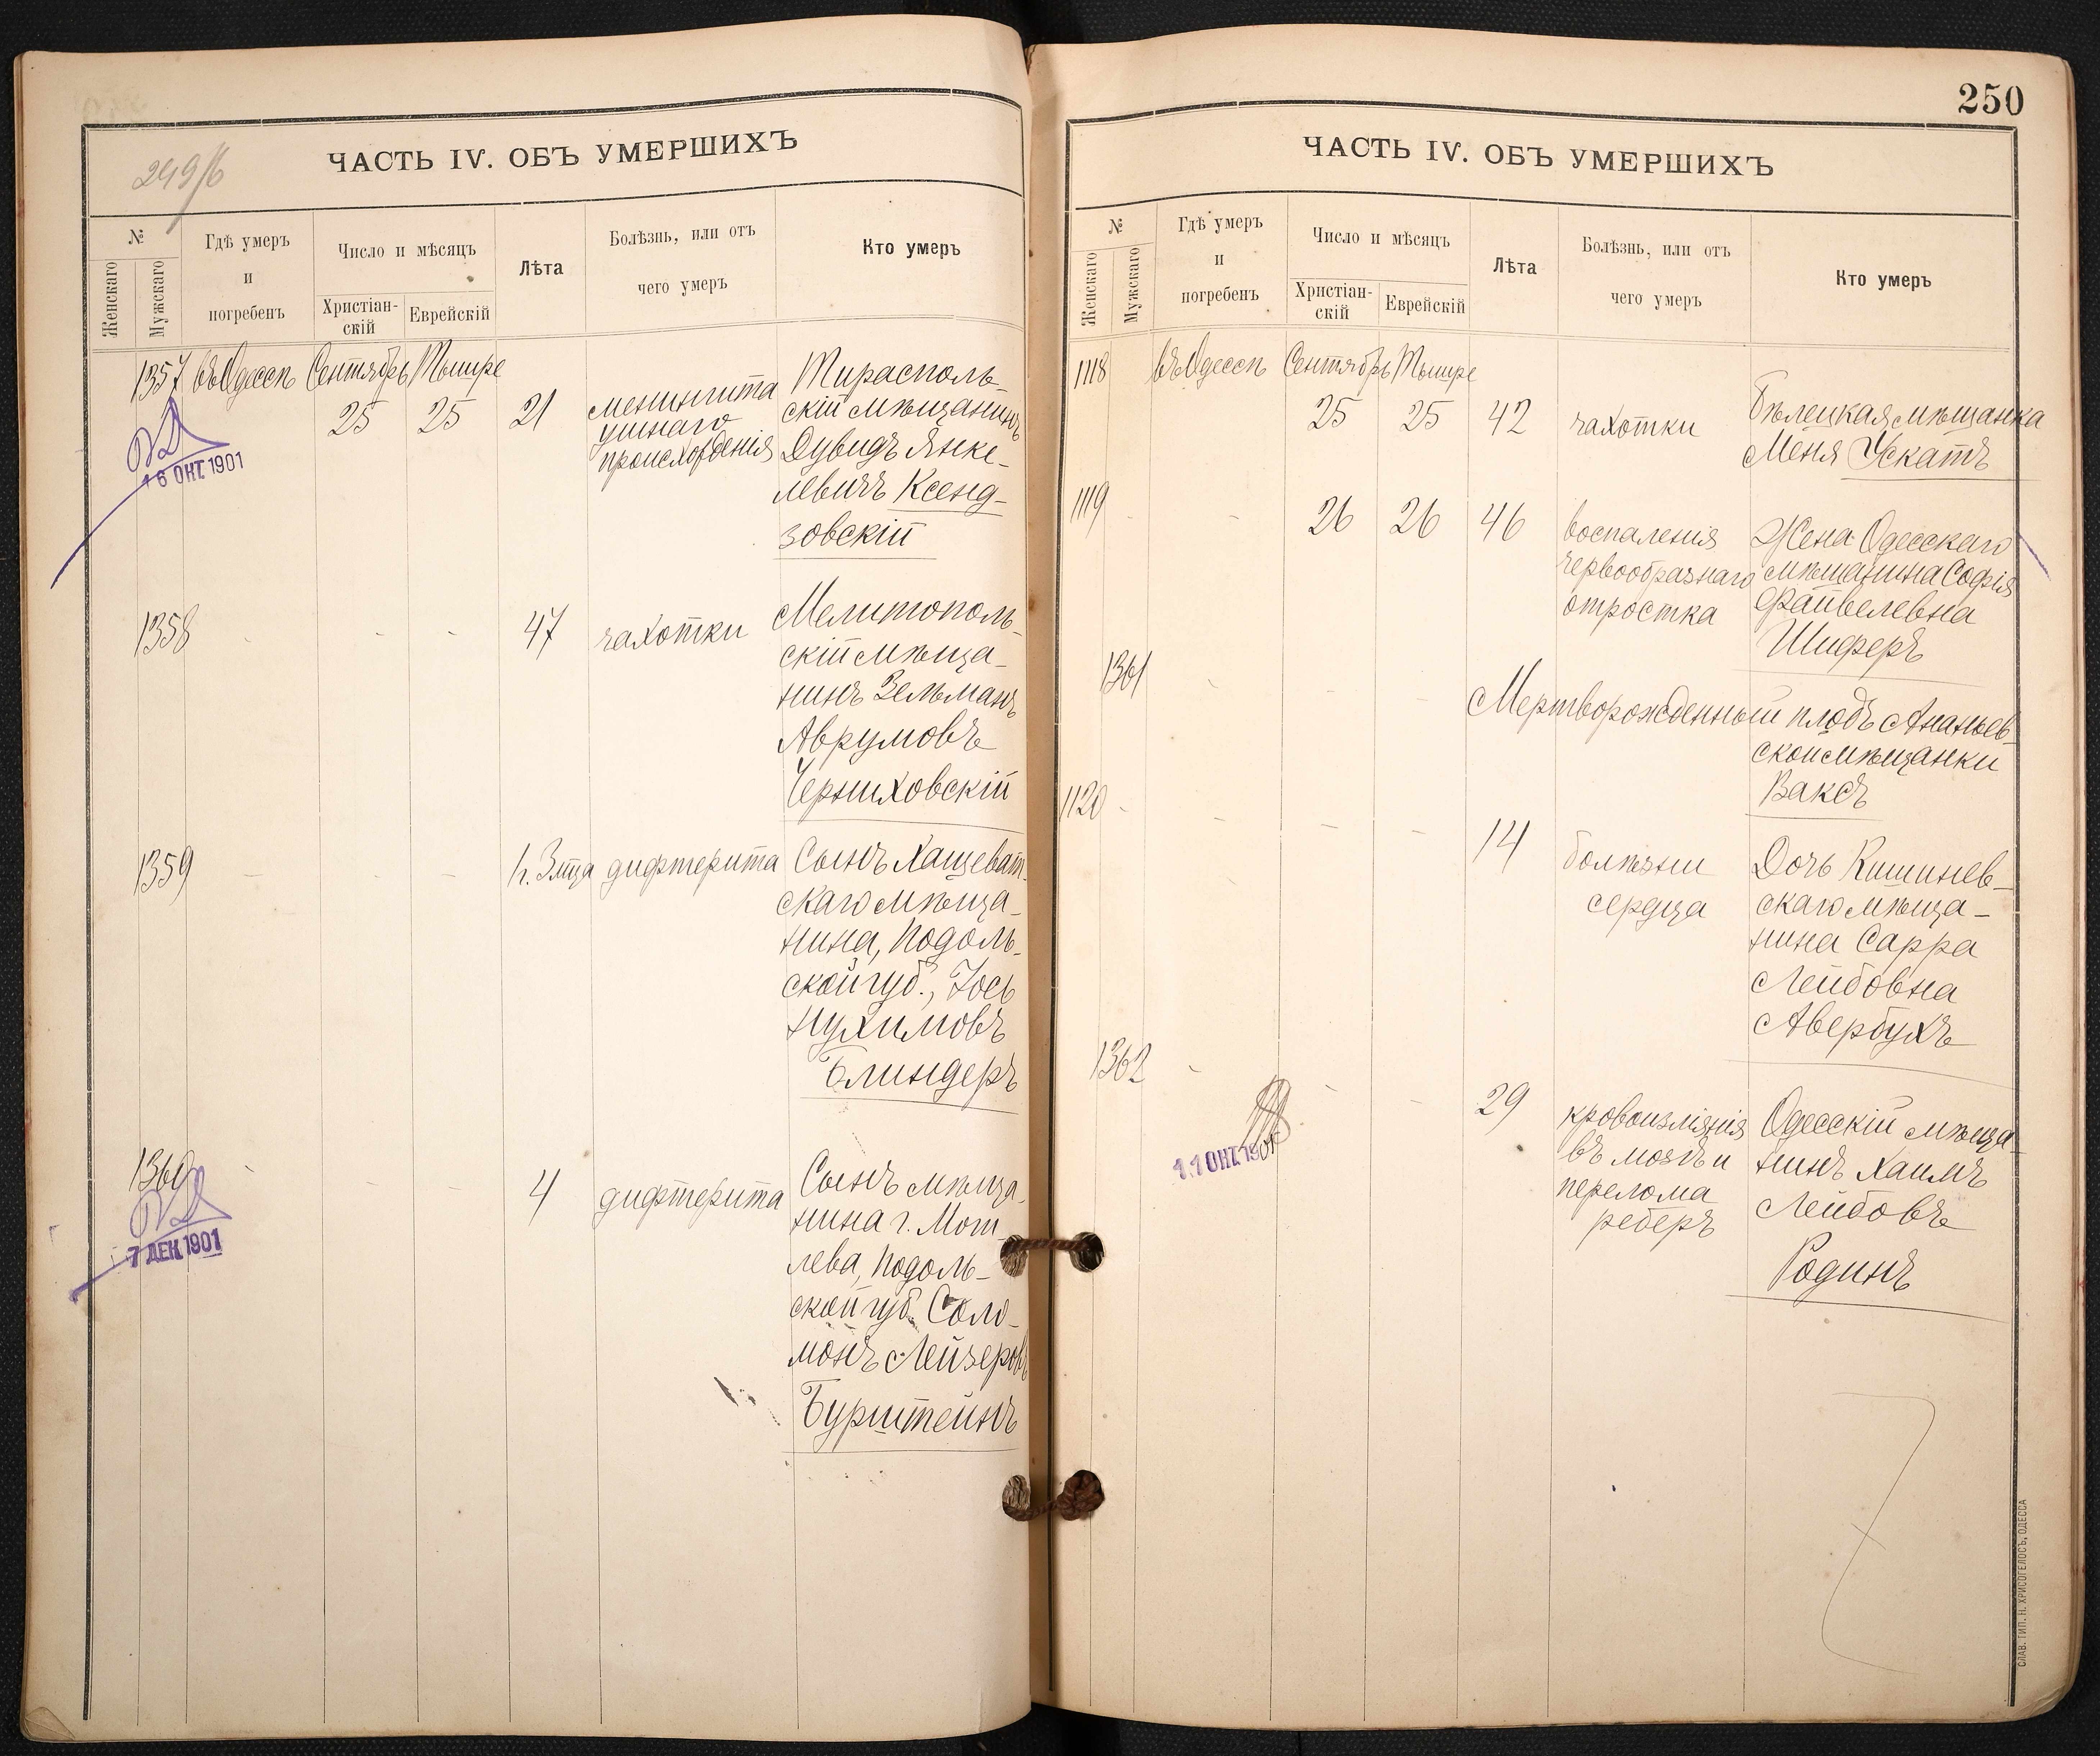 249/б
ЧАСТЬ IV. ОБЪ УМЕРШИХЪ
№
Женскаго
Мужскаго
Гдѣ умеръ
и
погребенъ
Число и мѣсяцъ
Христіан-
скій
Еврейскій
Лѣта
Болѣзнь, или отъ
чего умеръ
Кто умеръ
1357 въ Одессѣ Сентябрь Тышре
25 25 21
менингита
ушнаго
происхожденія
Тирасполь-
скій мѣщанинъ
Дувидъ Янке-
левичъ Ксенд-
зовскій
16 ОКТ 1901
1358 - - - 47 чахотки
Мелитополь-
скій мѣща-
нинъ Зельманъ
Аврумовъ
Черниховскій
1359 - - - ч. 3 мца дифтерита
Сынъ Хащеват-
скаго мѣща-
нина, Подоль-
ской губ., Іось
Нухимовъ
Блиндеръ
1360 - - - 4 дифтерита
Сынъ мѣща-
нина г. Моги-
лева, Подоль-
ской губ. Соло-
монъ Лейзеровъ
Бурштейнъ
7 ДЕК 1901
250
ЧАСТЬ IV. ОБЪ УМЕРШИХЪ
№
Женскаго
Мужскаго
Гдѣ умеръ
и
погребенъ
Число и мѣсяцъ
Христіан-
скій
Еврейскій
Лѣта
Болѣзнь, или отъ
чего умеръ
Кто умеръ
1118 въ Одессѣ Сентябрь Тышре
25 25 42 чахотки
Бѣлецкая мѣщанка
Меня Ускатъ
1119 - - 26 26 46
воспаленія
червообразнаго
отростка
Жена Одесскаго
мѣщанина Софія
Файвелевна
Шиферъ
1361 - - -
Мертворожденный плодъ Ананьев-
ской мѣщанки
Ваксъ
1120 - - - - 14
болѣзни
сердца
Дочь Кишинев-
скаго мѣща-
нина Сарра
Лейбовна
Авербухъ
1362 - - - 29
кровоизліянія
въ мозгъ и
перелома
реберъ
Одесскій мѣща-
нинъ Хаимъ
Лейбовъ
Родинъ
11 ОКТ 1901
СЛАВ. ТИП. Н. ХРИСОГЕЛОСЪ, ОДЕССА